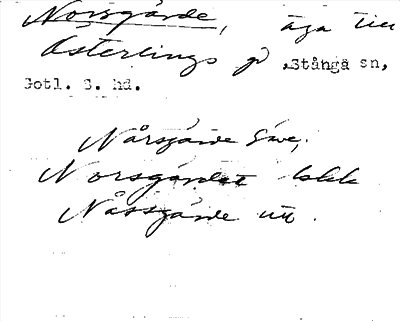 Norsgärde, äga till
Österlings på Stånga sn,
Gotl. S. hd.
Nårsgärde Säve,
Norsgärdet
Nåssgärde